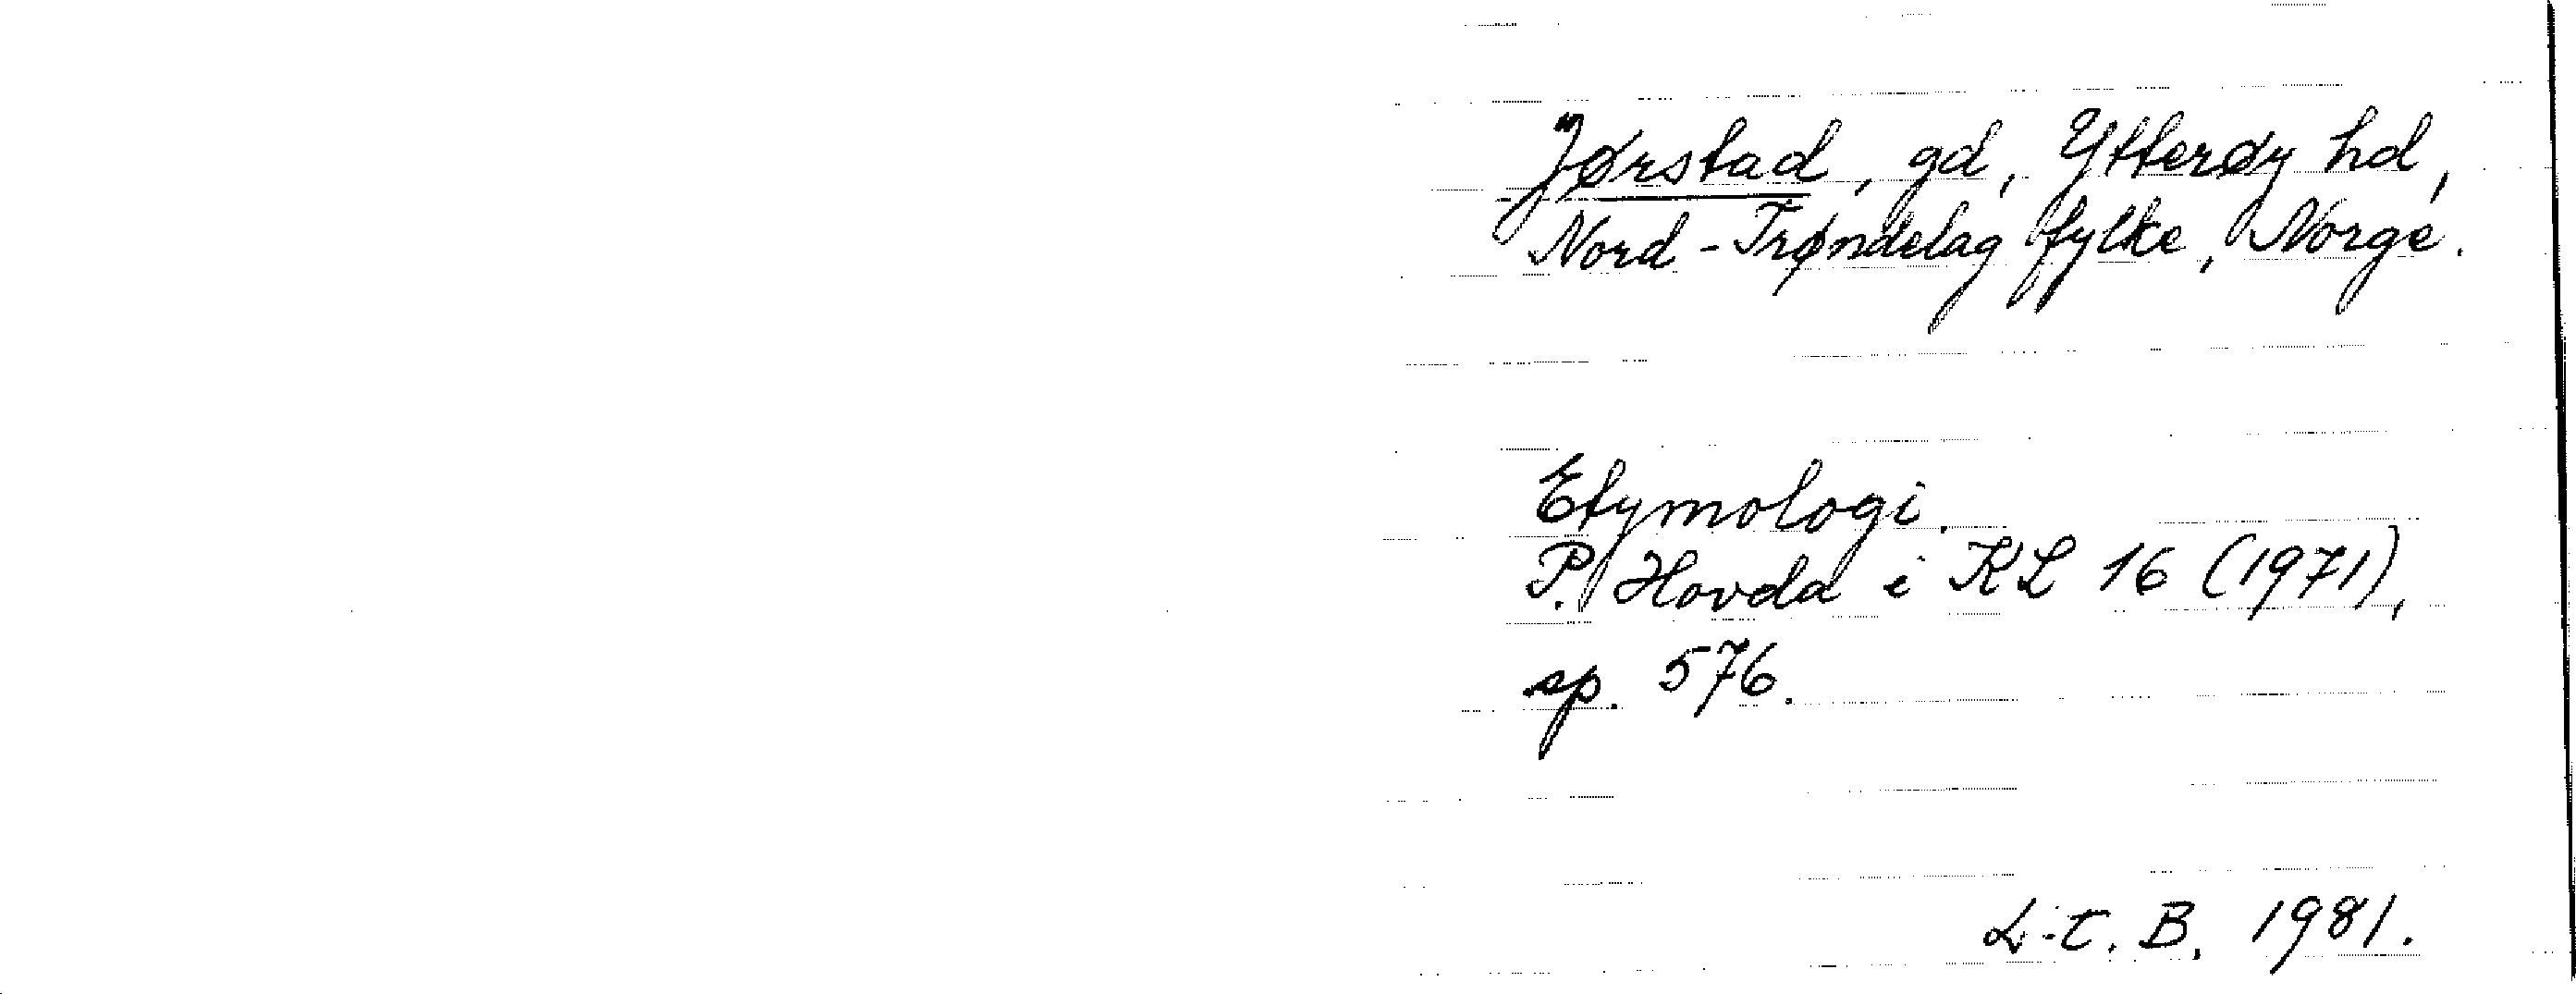 Jørstad, gd, Ytterøy hd,
Nord-Trøndelag fylke, Norge.
Etymologi.
P. Hovda i KL 16 (1971),
sp. 576.
L-C. B. 1981.